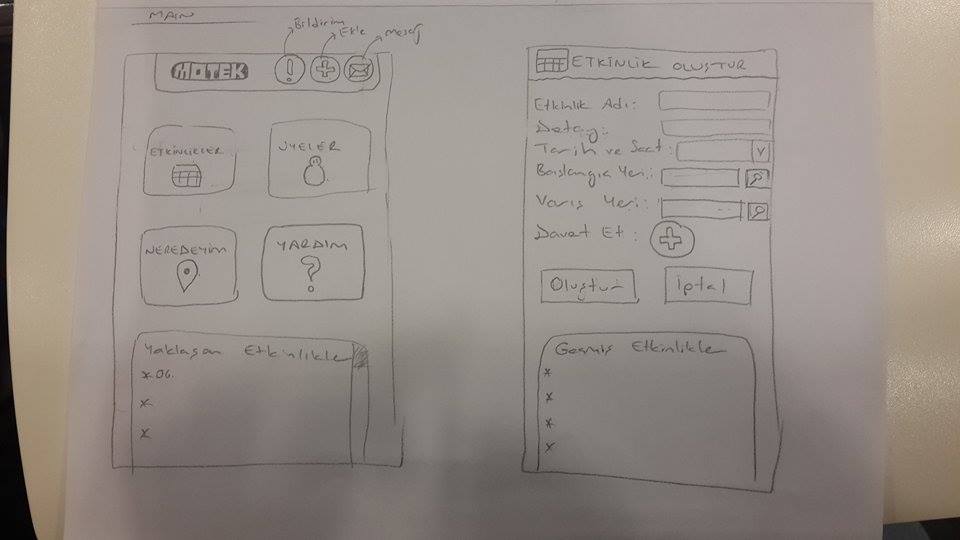 MAIN
Bildirim
Ekle
Mesaj
MOTEK
ETKİNLİKLER
ÜYELER
NEREDEYİM
YARDIM
?
Yaklaşan Etkinlikler
* 06.
*
*
ETKİNLİK OLUŞTUR
Etkinlik Adı:
Detay:
Tarih ve Saat: V
Başlangıç Yeri:
Varış Yeri:
Davet Et:
Oluştur
İptal
Geçmiş Etkinlikler
*
*
*
*